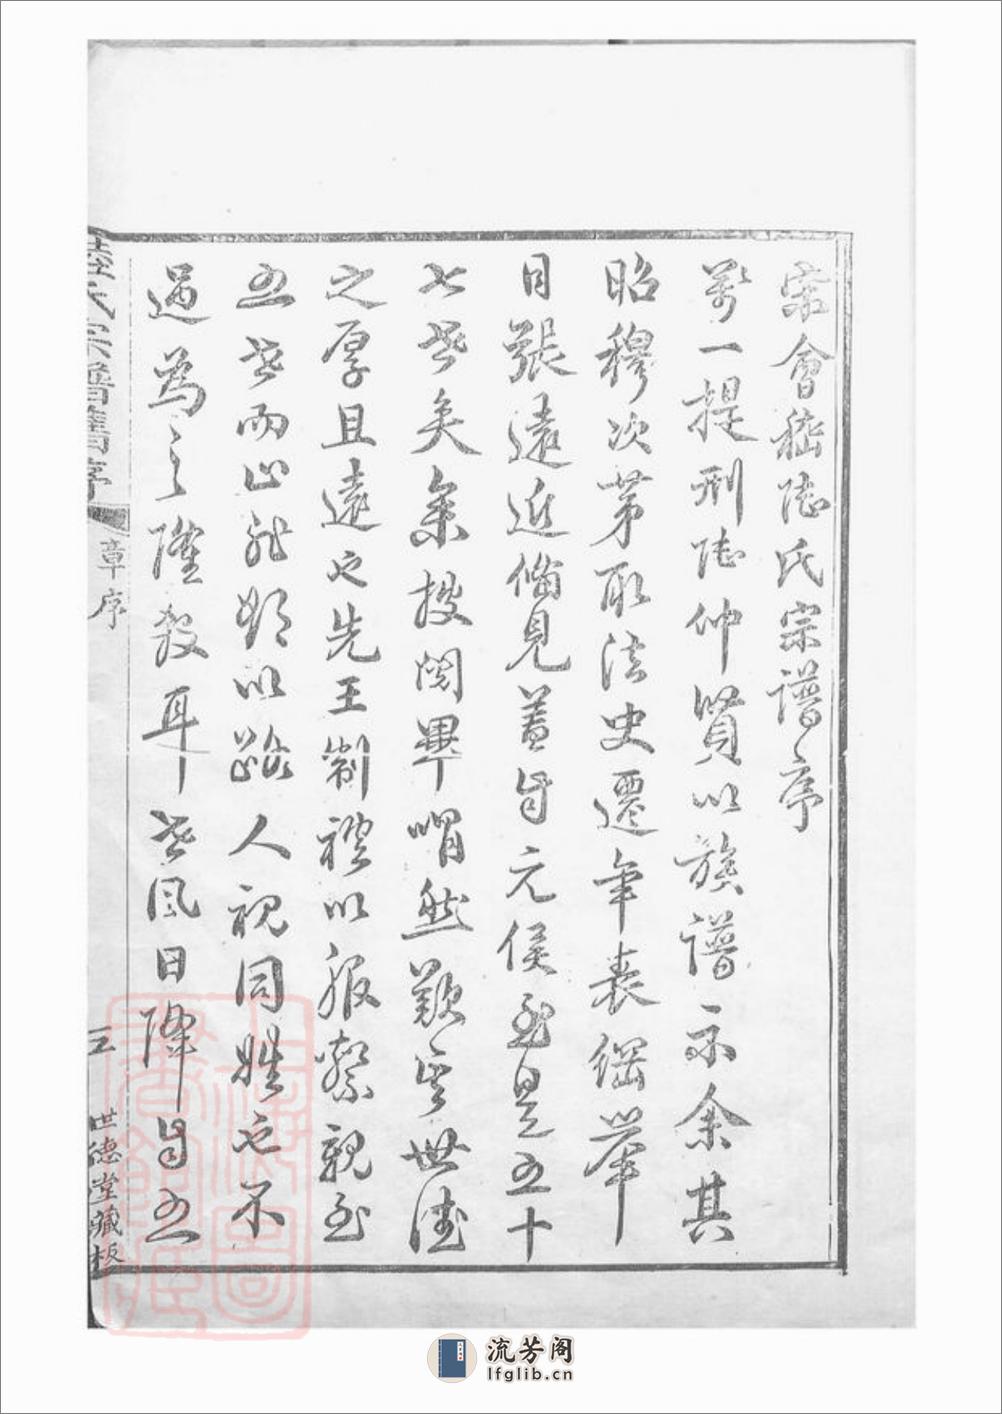 宋會稽陸氏宗譜序
萬一提刑陸仲賢以族譜示余其
昭穆次第取法史遷年表綱舉
目張遠近備見蓋自元侯至是五十
七世矣余披閱畢喟然歎曰世德
之厚且遠也先王制禮以服繫親至
五世而止非欲以路人視同姓也不
過為之隆殺耳世風日降自五
陸氏宗譜舊序 章序 三 世德堂藏板
流芳阁
lfglib.cn